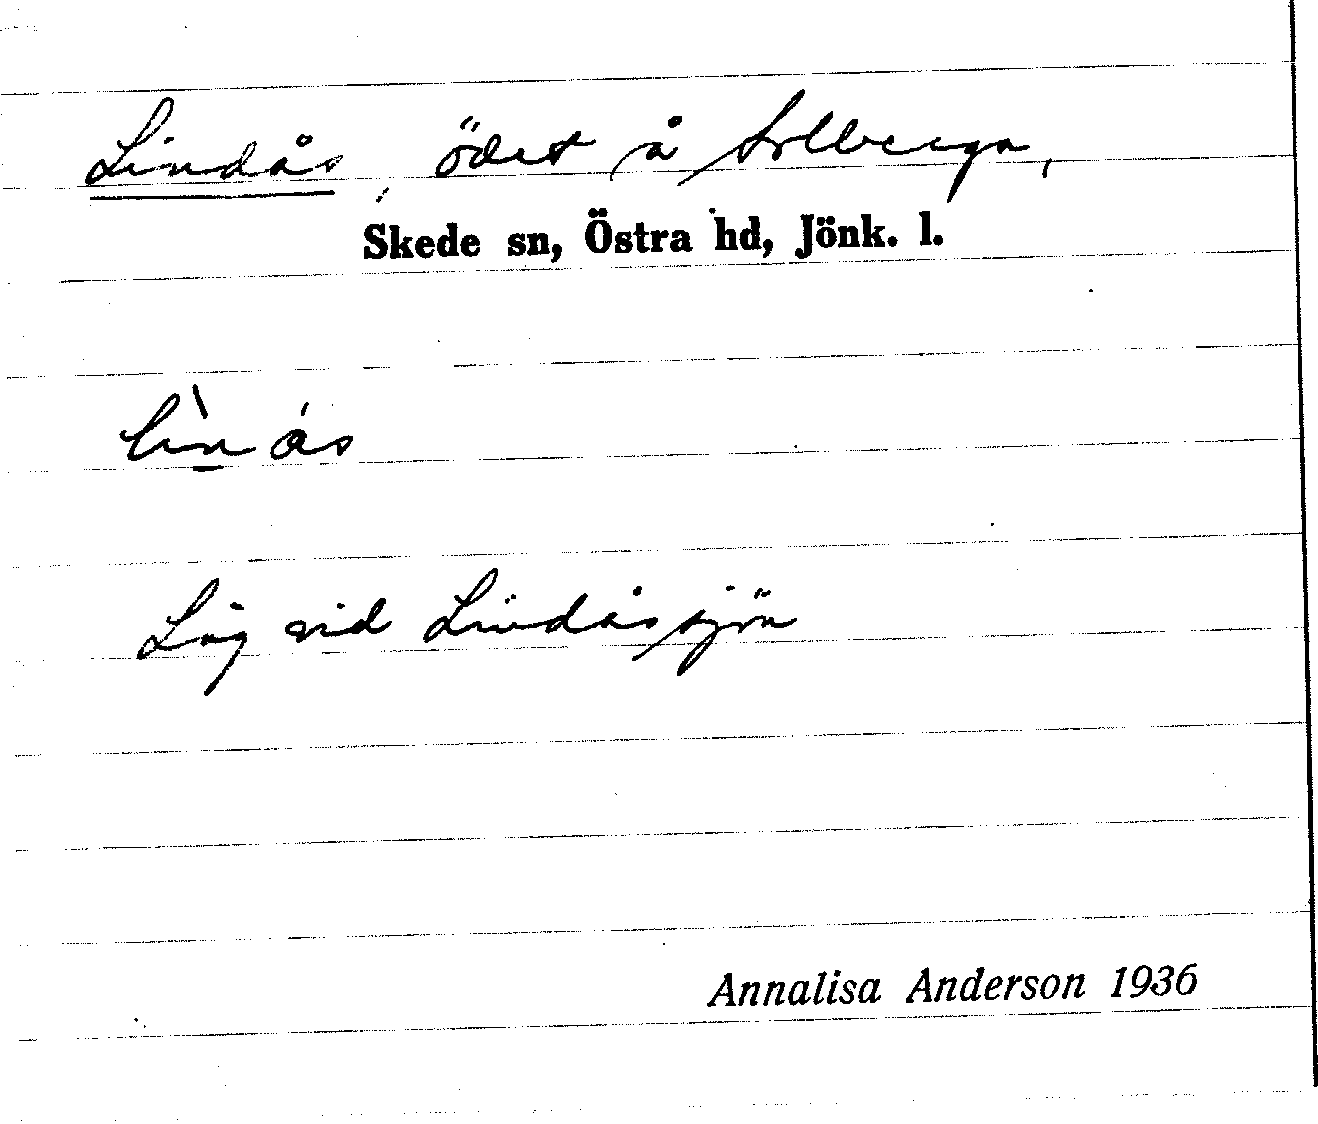 Lindås, ödet å Solberga,
Skede sn, Östra hd, Jönk. l.
lìnás
Låg vid Lindåssjön
Annalisa Anderson 1936